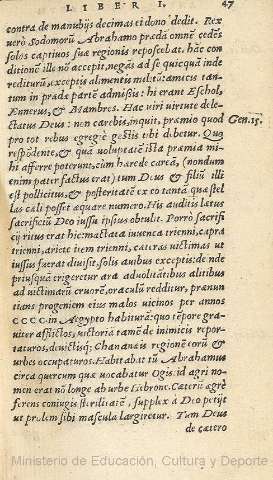 LIBER I. 47
contra de manubijs decimas ei dono dedit. Rex
uerò Sodomorũ Abrahamo prædã omnẽ cedẽs
solos captiuos suæ regionis reposcebat. hãc con
ditionẽ ille nõ accepit, negãs ad se quicquã inde
rediturũ, exceptis alimentis militũ: amicis tan-
tum in præde partẽ admissis: hi erant Eschol,
Ennerus, & Mambres. Hac uiri uirtute dele-
ctatus Deus: non carebis, inquit, præmio quod
Gen. 15.
pro tot rebus egregiè gestis tibi debetur. Quo
respõdente, & quã uoluptatẽ ista præmia mi-
hi afferre poterunt, cùm hærede careã, (nondum
enim pater factus erat) tum Deus & filiũ illi
est pollicitus, & posteritatẽ ex eo tantã quæ stel
las cæli posset æquare numero. His auditis lætus
sacrificiũ Deo iussu ipsius obtulit. Porrò sacrifi
cij ritus erat hic: mactata iuuenca trienni, capra
trienni, ariete itẽ trienni, cæteras uictimas ut
iussus fuerat diuisit, solis auibus exceptis: de nde
priusquã erigeretur ara aduolitãtibus alitibus
ad uictimarũ cruorẽ, oraculũ redditur, prænun
tians progeniem eius malos uicinos per annos
cccc in Aegypto habiturã: quo tẽpore gra-
uiter afflictos, uictoria tamẽ de inimicis repor-
taturos, deuictisq; Chananæis regionẽ eorũ &
urbes occupaturos. Habitabat tũ Abrahamus
circa quercum quæ uocabatur Ogis. id agri no-
men erat nõ longè ab urbe Hebrone. Cæterũ ægrè
ferens coniugis sterilitatẽ, supplex à Deo petijt
ut prolem sibi mascula largiretur. Tum Deus
de cætero
Ministerio de Educación, Cultura y Deporte